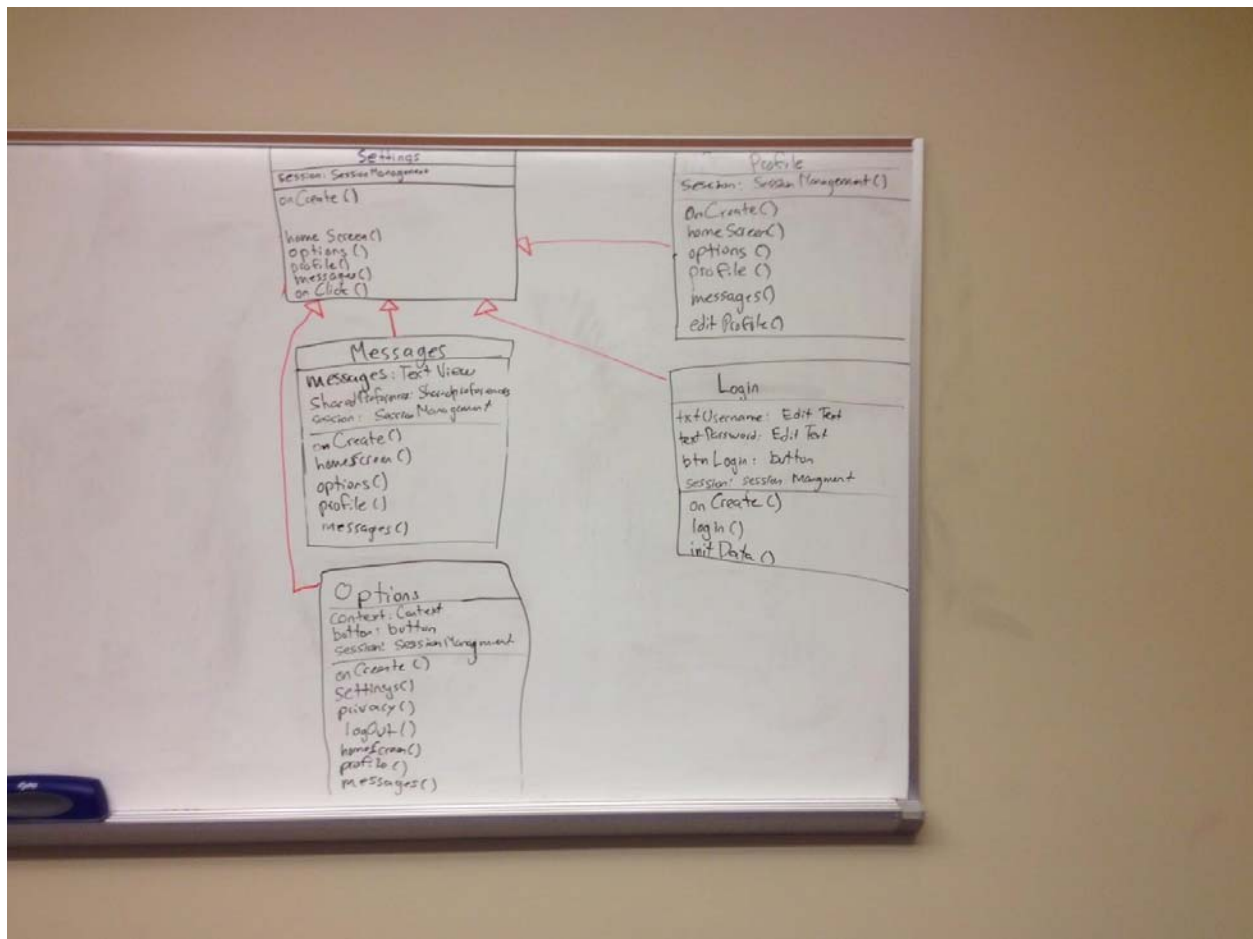 Settings
session: SessionManagement
onCreate()
homeScreen()
options()
profile()
messages()
onClick()
Profile
session: SessionManagement()
OnCreate()
homeScreen()
options()
profile()
messages()
editProfile()
Messages
messages: Text View
SharedPreference: Sharedpreferences
session: SessionManagement
onCreate()
homeScreen()
options()
profile()
messages()
Login
txtUsername: Edit Text
textPassword: Edit Text
btnLogin: button
session: session Mangment
onCreate()
login()
initData()
Options
context: Context
button: button
session: SessionMangment
onCreate()
Settings()
privacy()
logOut()
homeScreen()
profile()
messages()